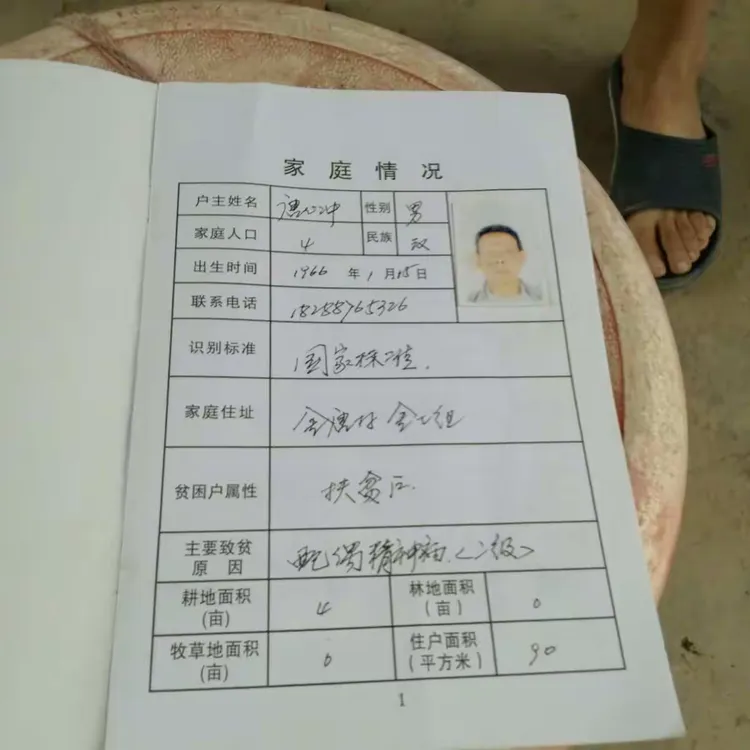 家庭情况
户主姓名 唐心冲 性别 男
家庭人口 4 民族 汉
出生时间 1966 年 1 月 15 日
联系电话 18288765326
识别标准 国家标准.
家庭住址 金唐村 金一组
贫困户属性 扶贫户.
主要致贫原因 配偶精神病.<二级>
耕地面积(亩) 4 林地面积(亩) 0
牧草地面积(亩) 0 住户面积(平方米) 90
1